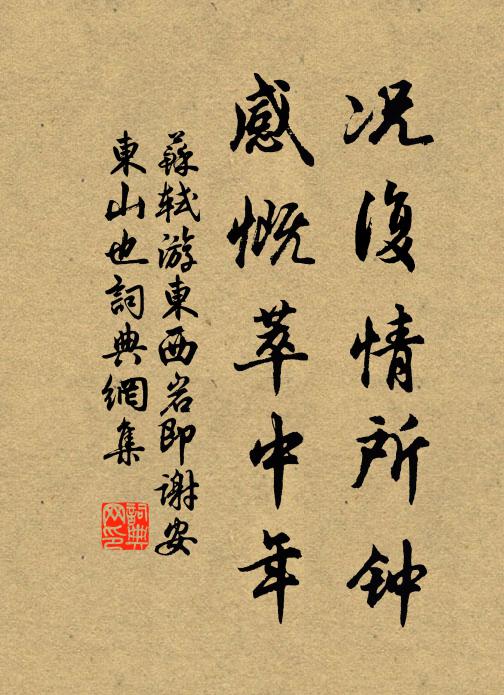 况復情所钟
感慨萃中年
蘇軾游東西岩即謝安
東山也詞典網集
詞典
网印